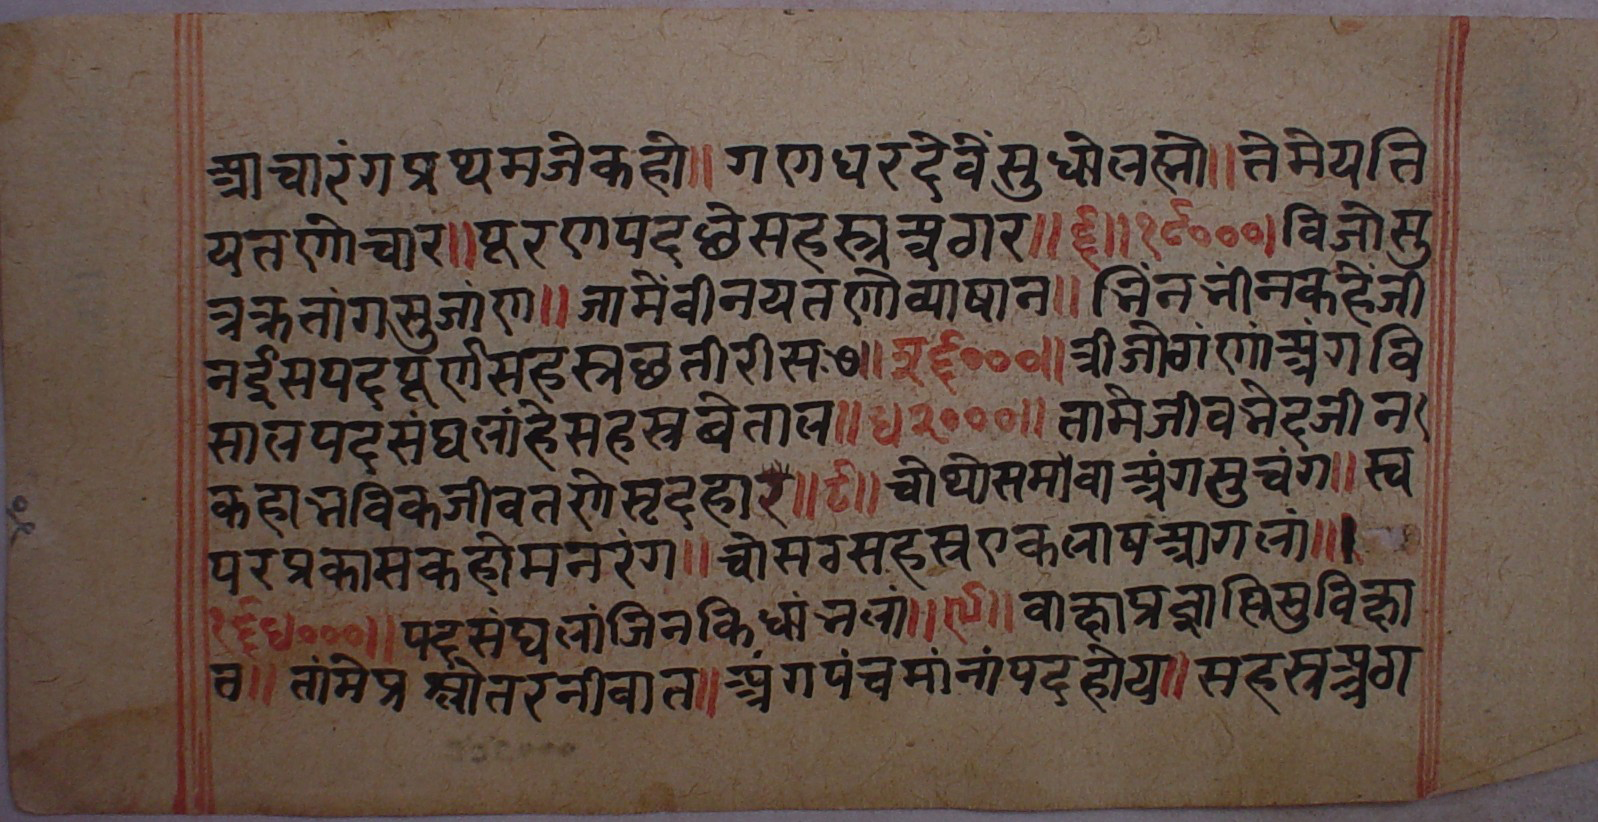 आचारंगप्रथमजेकहो॥ गणधरदेवेंसुधोलह्यो॥ तेमेयति
यतणोचार॥ पूरणपदछेसहस्त्रअठार॥६॥१८०००। विजोसु
त्रक्रतांगसुजांण॥ जामेंवीनयतणोव्याषान॥ भिंनभींनकहेंजी
नईसपदपूर्णसहस्त्रछतीरीस॥७॥३६०००॥ त्रीजोठांणांअंगवि
सालपदसंघलांहेसहस्त्रबेताल॥४२०००॥ तामेजीवभेदजीन
कहाभविकजीवतणेसृदहार॥८॥ चोथोसमोवाअंगसुचंग॥ स्व
परप्रकासकहोमनरंग॥ चोसठसहस्त्रएकलाषआगलां॥।
१६४०००॥ पदसंघलांजिनकिधांभलां॥९॥ वाक्षाप्रज्ञाप्तिसुविक्षा
त॥ तांमेप्रश्नोतरनीवात॥ अंगपंचमांनांपदहोय॥ सहस्त्रअठा